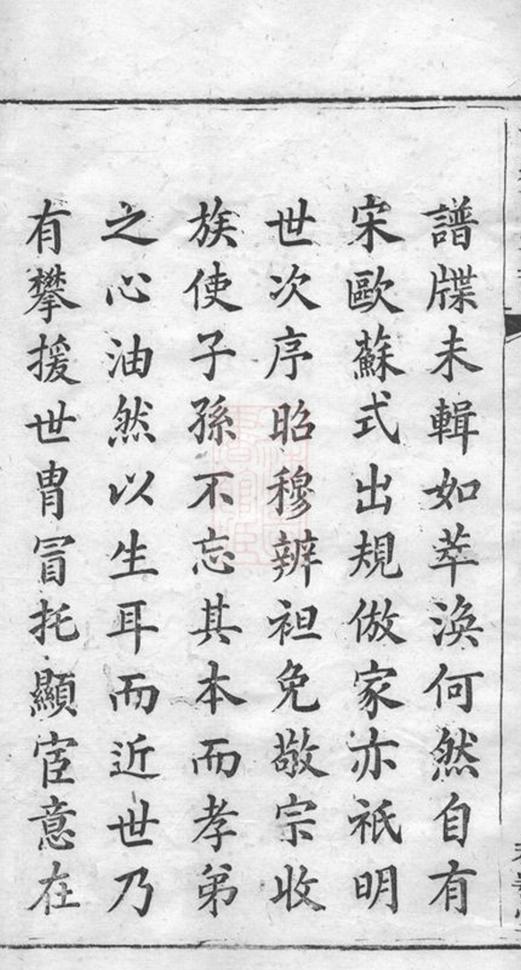 譜牒未輯如萃渙何然自有
宋歐蘇式出規倣家亦祇明
世次序昭穆辨袒免敬宗收
族使子孫不忘其本而孝弟
之心油然以生耳而近世乃
有攀援世胄冐托顯宦意在